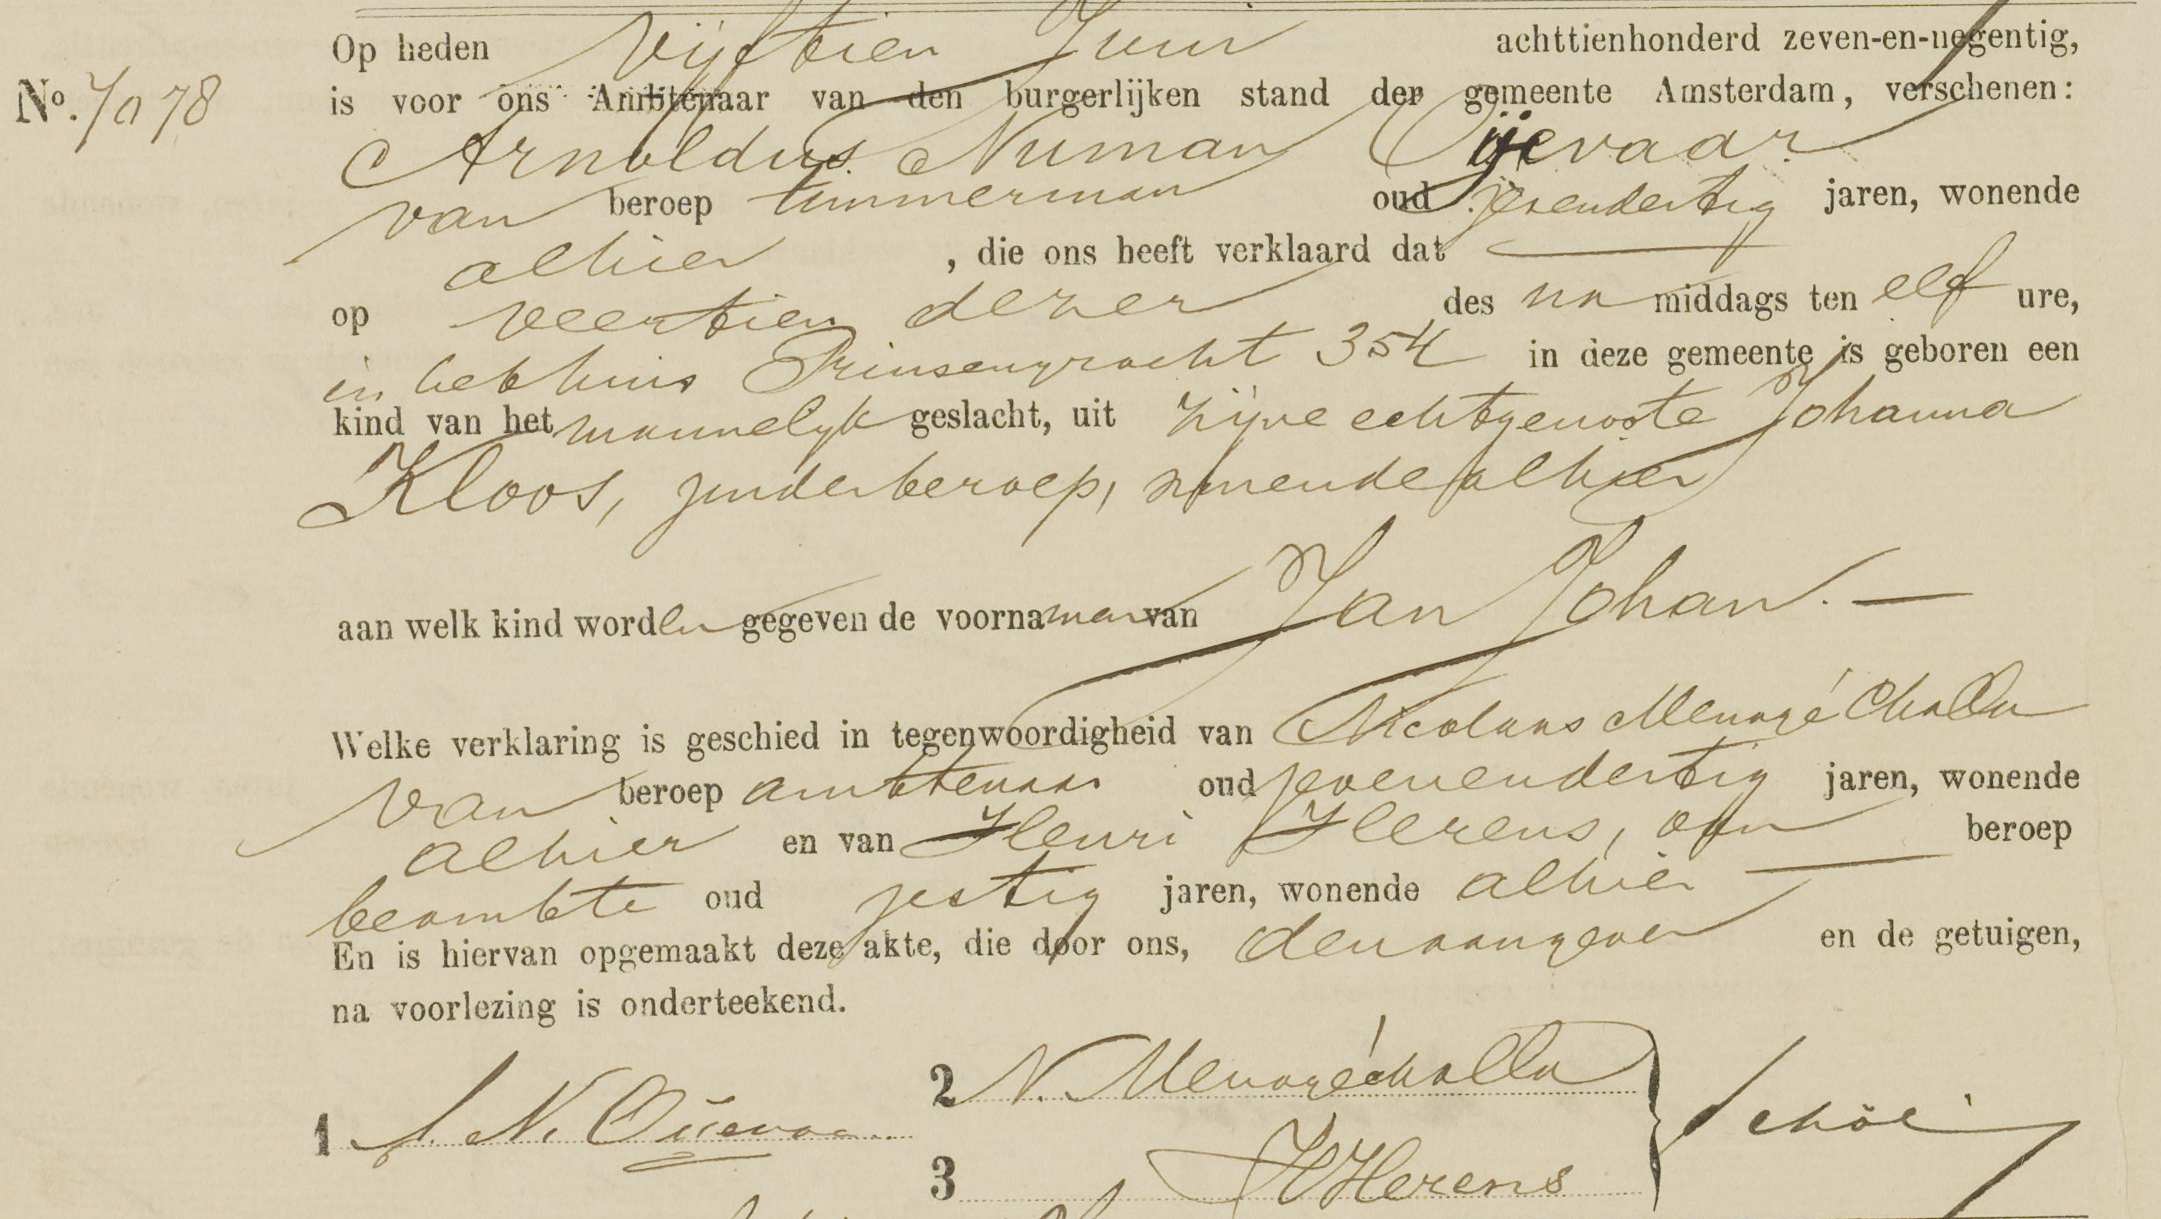 Op heden vijftien Juni achttienhonderd zeven-en-negentig,
No. 7078 is voor ons Ambtenaar van den burgerlijken stand der gemeente Amsterdam, verschenen:
Arnoldus Numan Oijevaar
van beroep timmerman oud zesendertig jaren, wonende
alhier , die ons heeft verklaard dat
op veertien dezer des na middags ten elf ure,
in het huis Prinsengracht 354 in deze gemeente is geboren een
kind van het mannelyk geslacht, uit zijne echtgenoote Johanna
Kloos, zonder beroep, wonende alhier
aan welk kind worden gegeven de voornamen van Jan Johan. —
Welke verklaring is geschied in tegenwoordigheid van Nicolaas Menagé Challa
van beroep ambtenaar oud zevenendertig jaren, wonende
alhier en van Henri Herens, van beroep
beambte oud zestig jaren, wonende alhier
En is hiervan opgemaakt deze akte, die door ons, den aangever en de getuigen,
na voorlezing is onderteekend.
1 A. N. Oijevaar 2 N. Menagé Challa
3 HHerens